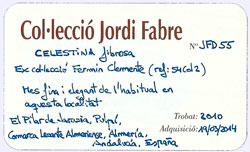 Col·lecció Jordi Fabre
CELESTINA fibrosa
Nº JFD55
Ex col·lecció Fermín Clemente (ref: 54Col2)
Més fina i elegant de l'habitual en
aquesta localitat
El Pilar de Jaravía, Pulpí,
Comarca Levante Almeriense, Almería,
Andalucía, España
Trobat: 2010
Adquisició: 19/03/2014